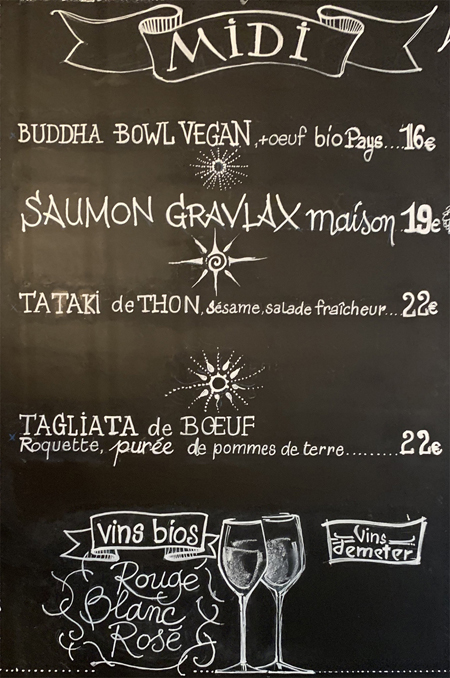 MiDi
BUDDHA BOWL VEGAN, +oeuf bio Pays....16€
SAUMON GRAVLAX maison 19€
TATAKi de THON, sésame, salade fraîcheur...22€
TAGLiATA de BŒUF
Roquette, purée de pommes de terre.........22€
vins bios
Vins demeter
Rougé
Blanc
Rosé